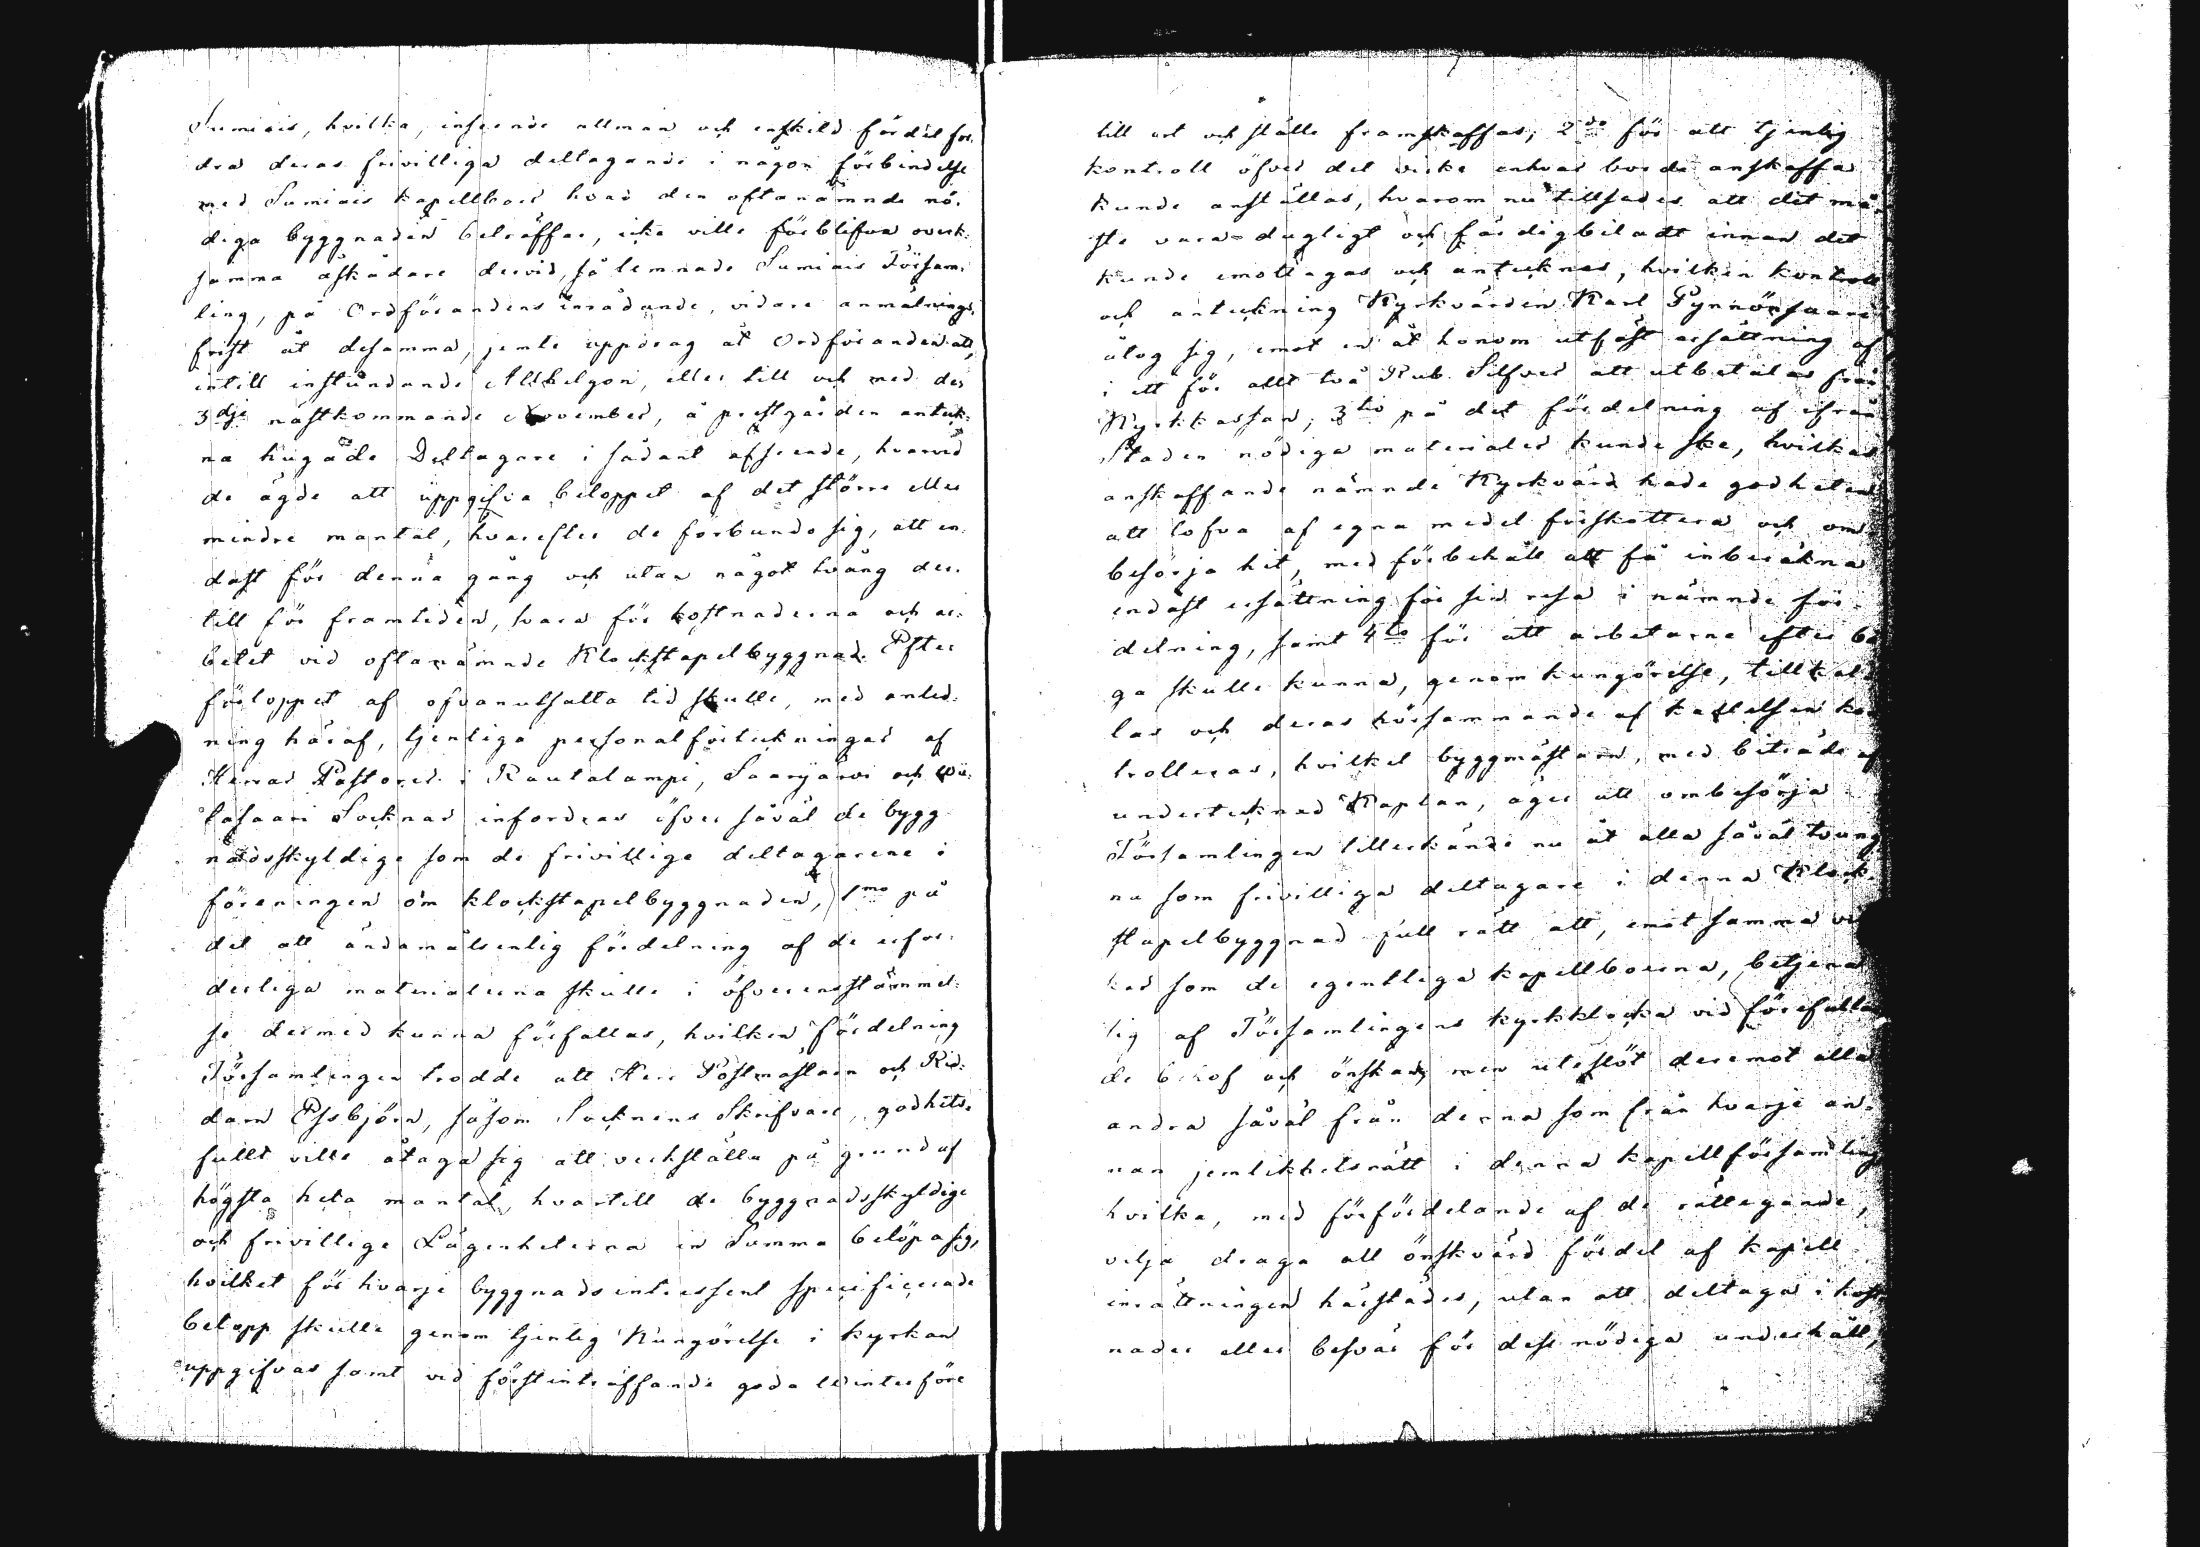 Sumiais, hvilka, inseende allmän och enskild fördel for-
dra deras frivilliga deltagande i någon förbindelse
med Sumiais kapellboer hvad den oftanämnde nö-
diga byggnaden beträffar, icke ville förblifva overk-
samma åskådare dervid, så lemnade Sumiais Försam-
ling, på Ordförandens inrådande, vidare anmälnings
frist åt desamma, jemte uppdrag åt Ordföranden att,
intill instundande Allhelgon, eller till och med den
3dje nästkommande November, å prestgården anteck-
na hugade Deltagare i sådant afseende, hvarvid
de ägde att uppgifva beloppet af det större eller
mindre mantal, hvarefter de förbundo sig, att en-
dast för denna gång och utan något tvång der-
till för framtiden, svara för kostnaderna och ar-
betet vid oftanämnde Klockstapelbyggnad. Efter
förloppet af ofvanutsatta tid skulle, med anled-
ning häraf, tjenliga personalförteckningar af
Herrar Pastorer i Rautalampi, Saarijärvi och Wii-
tasaari Socknar infordras öfver såväl de bygg
nadsskyldige som de frivillige deltagarene i
föreningen om klockstapelbyggnaden, 1mo på
det att ändamålsenlig fördelning af de erfor-
derliga materialierna skulle i öfverensstämmel-
se dermed kunna författas, hvilken fördelning
Församlingen trodde att Herr Postmästarn och Rid-
darn Essbjörn, såsom Socknens Skrifvare, godhets-
fullt ville åtaga sig att verkställa på grund af
högsta hela mantal, hvartill de byggnadsskyldige
och frivillige Lägenheterna in Summa belöpa sig,
hvilket för hvarje byggnadsintressent specificerade
belopp skulle genom tjenlig Kungörelse i kyrkan
uppgifvas samt vid förstinträffande goda Winterföre
till ort och ställe framskaffas; 2do för att tjenlig
kontroll öfver det virke enhvar borde anskaffa
kunde anställas, hvarom nu tillsades att det må-
ste vara dugligt och färdigbiladt innan det
kunde emottagas och antecknas, hvilken kontroll
och anteckning Kyrkvärden Karl Pynnönsaari
åtog sig, emot en åt honom utfäst ersättning af
i ett för allt två Rub. Silfver att utbetalas från
Kyrkkassan; 3tio på det fördelning af ifrån
Staden nödiga materialier kunde ske, hvilkas
anskaffande nämnde Kyrkvärd hade godheten
att lofva af egna medel förskottera och om
besörja hit, med förbehåll att få inberäkna
endast ersättning för sin resa i nämnde för-
delning, samt 4to för att arbetarne efter bå
ga skulle kunna, genom kungörelse, tillkal-
las och deras hörsammande af kallelsen kon
trolleras, hvilket byggmästarn, med biträde af
undertecknad Kaplan, äger att ombesörja.
Församlingen tillerkände nu åt alla såväl tvung
na som frivilliga deltagare i denna Klock-
stapelbyggnad full rätt att, emot samma vil
kor som de egentliga kapellboerna, betjena
sig af Församlingens kyrkklocka vid förefallan
de behof och önskan, men uteslöt deremot alla
andra såväl från denna som från hvarje an-
nan jemlikhetsrätt i denna kapellförsamling
hvilka, med förfördelande af de rättegande,
velja draga all önskvärd fördel af kapell
inrättningen härstädes, utan att deltaga i kost
nader eller besvär för dess nödiga underhåll,